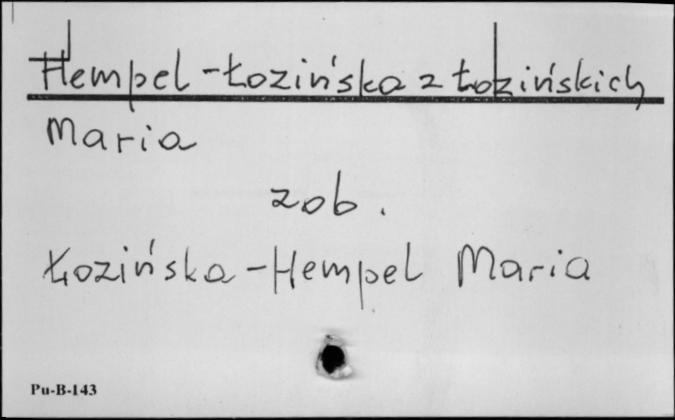 Hempel-Łozińska z Łozińskich
Maria
zob.
Łozińska-Hempel Maria
Pu-B-143